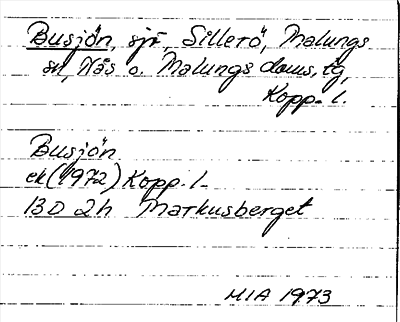 Busjön, sjö, Sillerö, Malungs
sn, Nås o. Malungs doms. tg,
Kopp. l.
Busjön
ek (1972) Kopp. l.
13D 2h Markusberget
MIA 1973